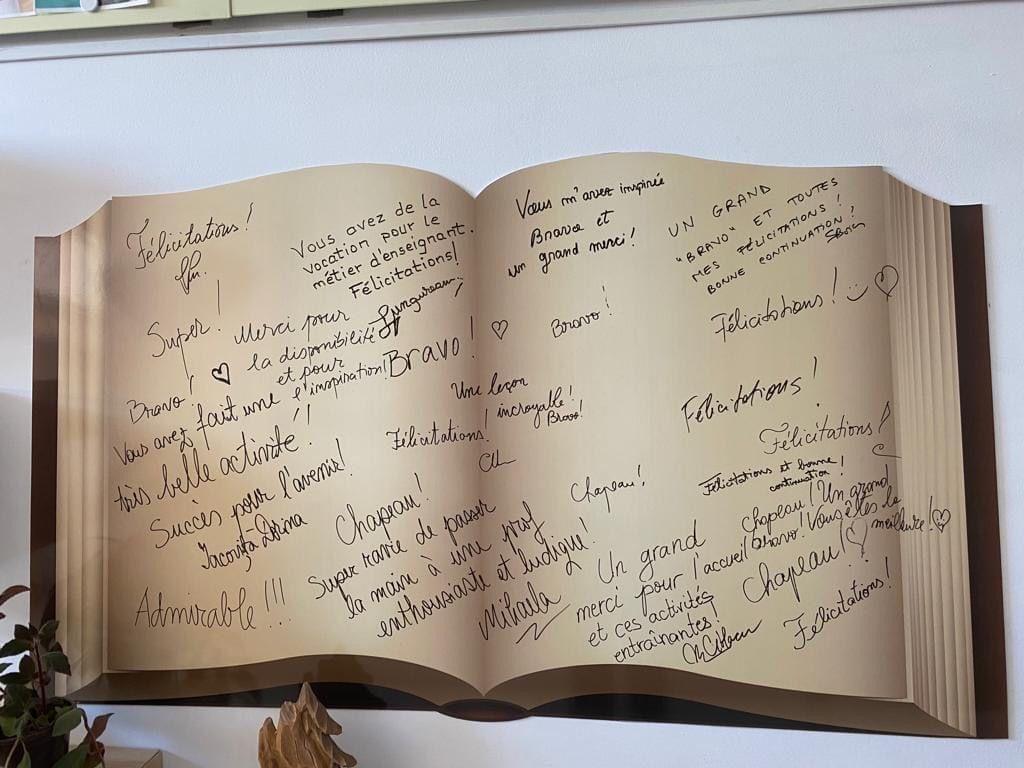 Félicitations!
Super!
Bravo!
Vous avez de la
vocation pour le
métier d'enseignant.
Félicitations!
Merci pour
la disponibilité
et pour
l'inspiration!
Bravo!
Vous avez fait une
très belle activité!!
Succès pour l'avenir!
Iacoviță Dorina
Admirable!!!
Félicitations!
Chapeau!
Super ravie de passer
la main à une prof
enthousiaste et ludique!
Mihaela
Vous m'avez inspirée
Bravo et
un grand merci!
UN GRAND
"BRAVO" ET TOUTES
MES FÉLICITATIONS!
BONNE CONTINUATION!
Bravo!
Félicitations!
Une leçon
incroyable!
Bravo!
Félicitations!
Félicitations!
Félicitations et bonne
continuation!
Chapeau!
Chapeau! Un grand
bravo! Vous êtes la
meilleure!
Un grand
merci pour l'accueil
et ces activités
entraînantes!
Chapeau!
Félicitations!